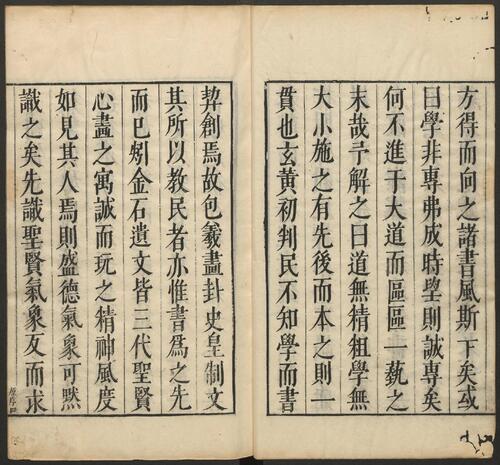 方得而向之諸書風斯下矣或
曰學非專弗成時望則誠專矣
何不進于大道而區區一藝之
末哉予解之曰道無精粗學無
大小施之有先後而本之則一
貫也玄黃初判民不知學而書
契創焉故包羲畫卦史皇制文
其所以教民者亦惟書為之先
而已矧金石遺文皆三代聖賢
心畫之寓誠而玩之精神風度
如見其人焉則盛德氣象可默
識之矣先識聖賢氣象反而求